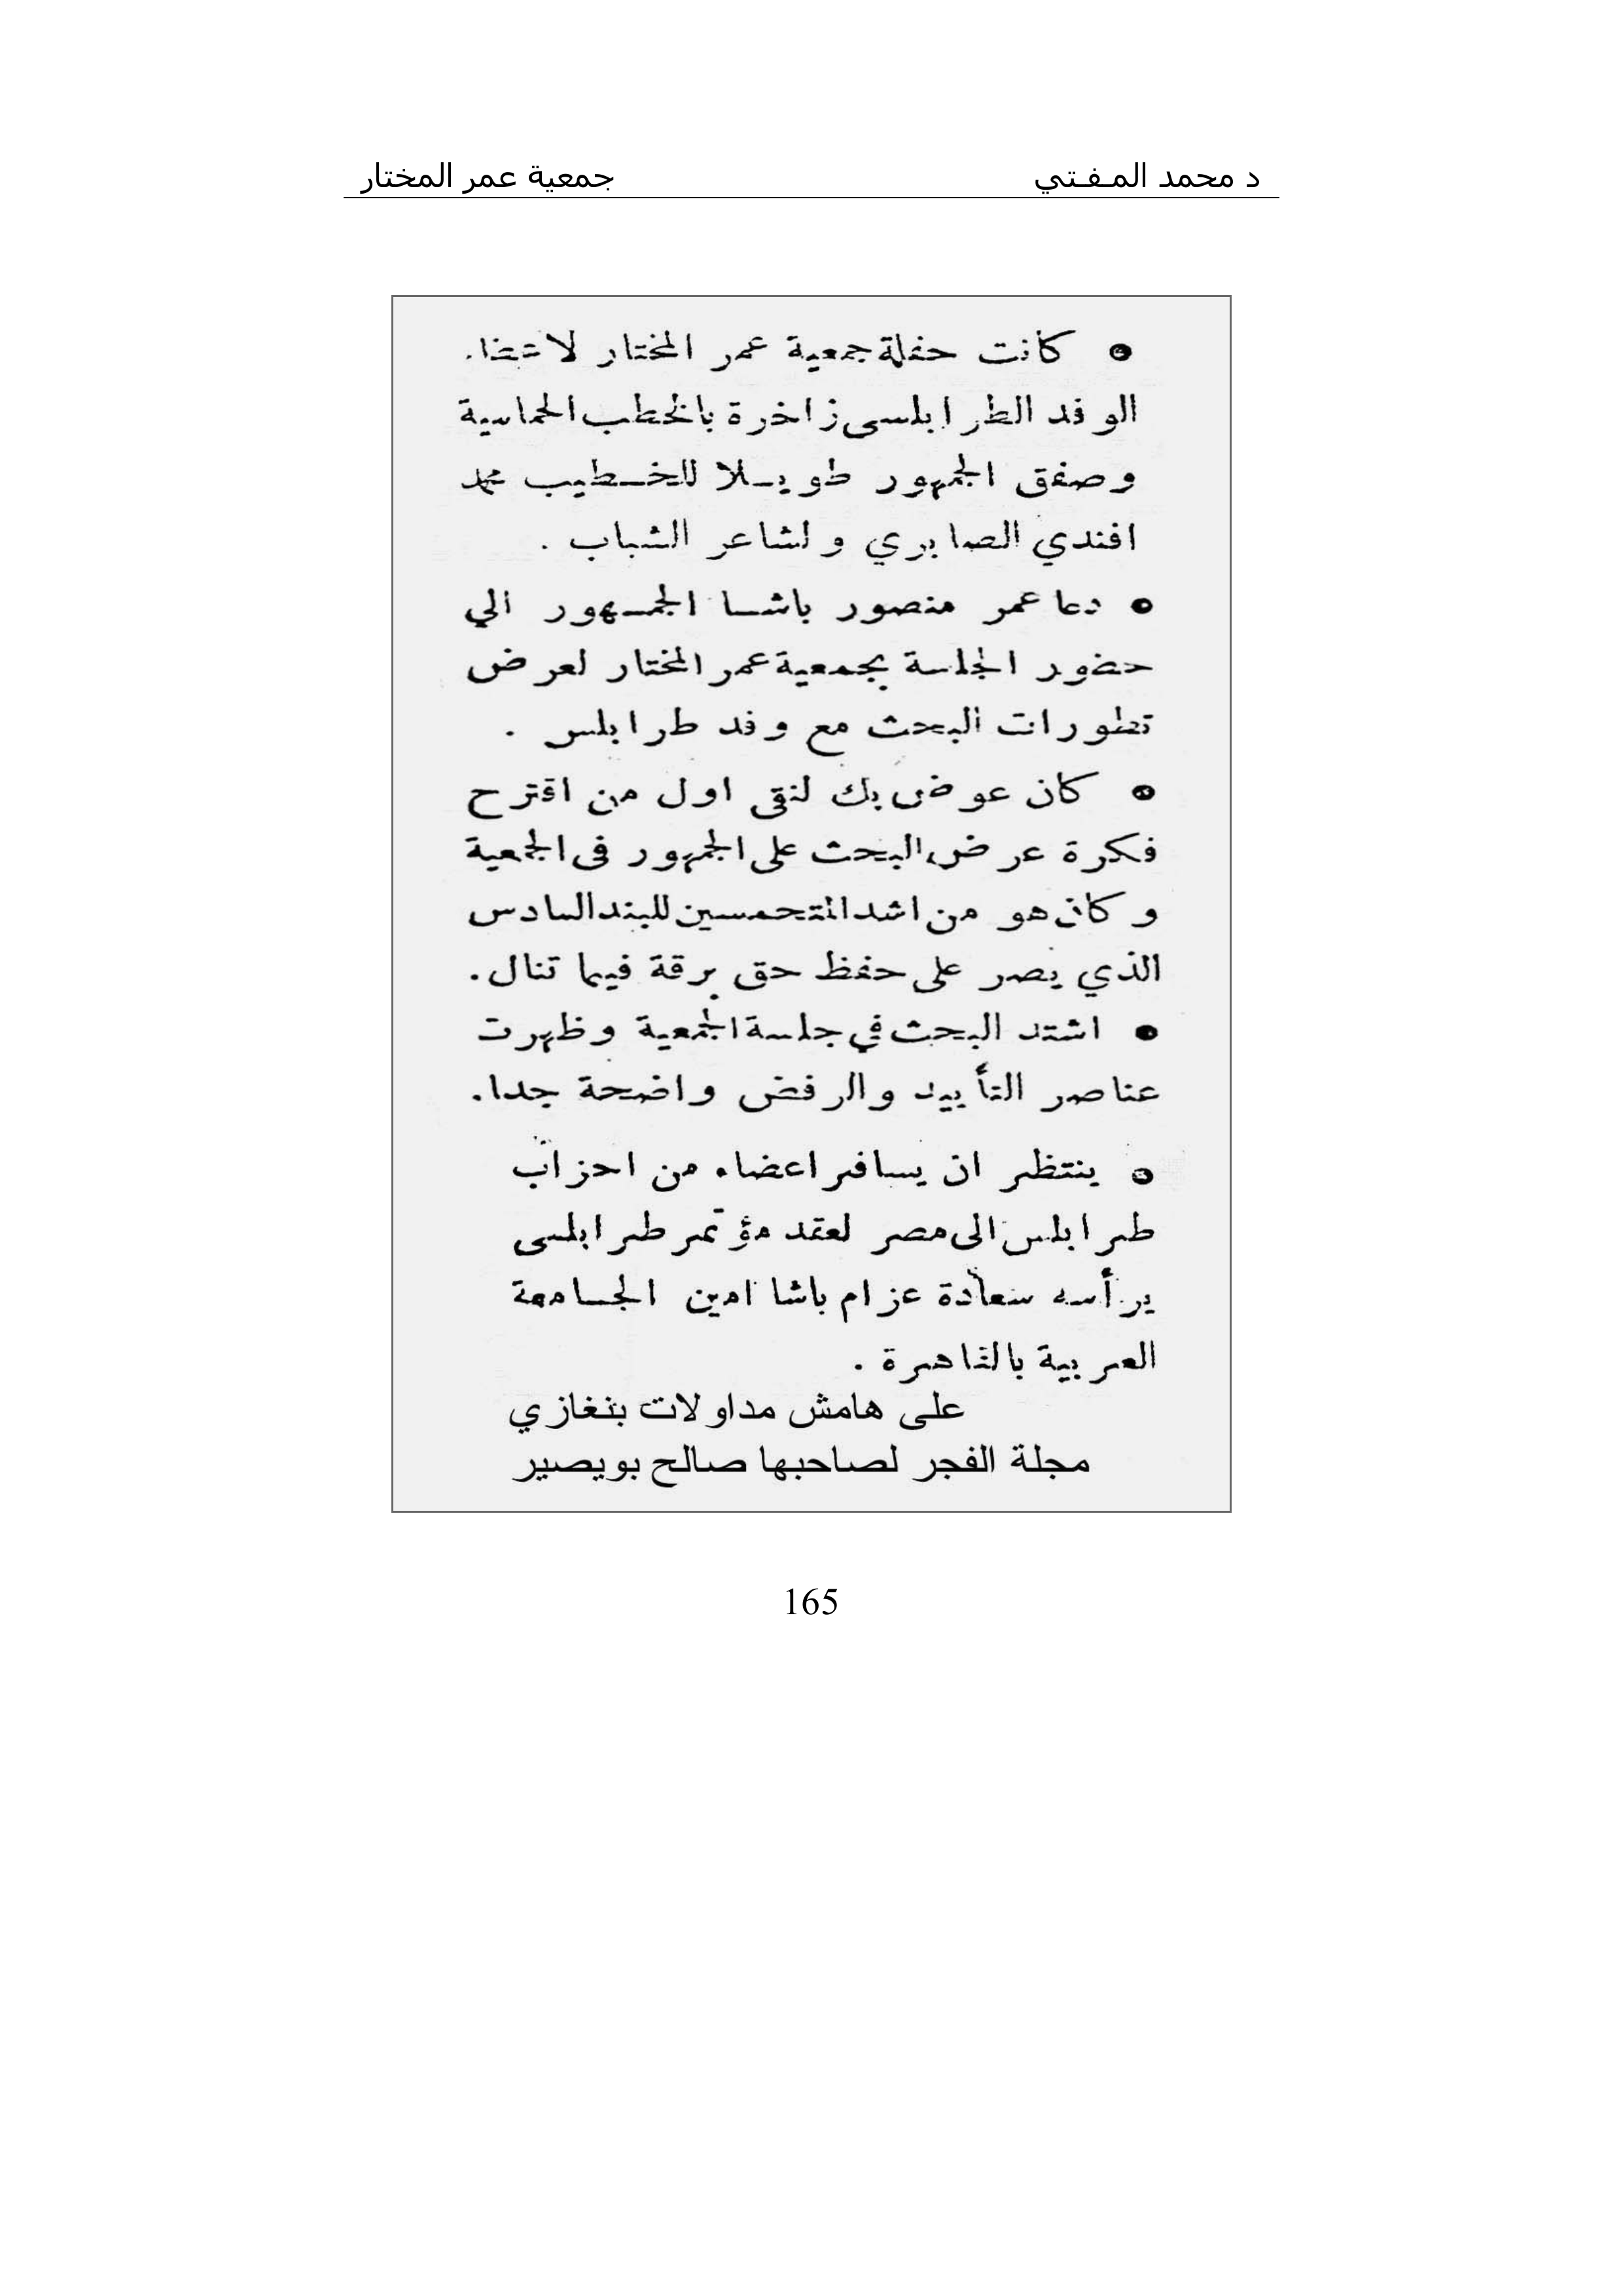 د محمد المـفـتي
جمعية عمر المختار
● كانت حفلة جمعية عمر المختار لاحتفاء
الوفد الطرابلسى زاخرة بالخطب الحماسية
وصفق الجمهور طويـلا للخـطيب محمد
افندي الصابري ولشاعر الشباب .
● دعا عمر منصور باشـا الجمـهور الي
حضور الجلسة بجمعية عمر المختار لعرض
تطورات البحث مع وفد طرابلس .
● كان عوض بك لنقى اول من اقترح
فكرة عرض البحث على الجمهور فى الجمعية
وكان هو من اشد المتحمسين للبند السادس
الذي يصر على حفظ حق برقة فيما تنال.
● اشتد البحث في جلسة الجمعية وظهرت
عناصر التأييد والرفض واضحة جدا.
● ينتظر ان يسافر اعضاء من احزاب
طرابلس الى مصر لعقد مؤتمر طرابلسى
يرأسه سعادة عزام باشا امين الجـامعة
العربية بالقاهرة .
على هامش مداولات بنغازي
مجلة الفجر لصاحبها صالح بويصير
165